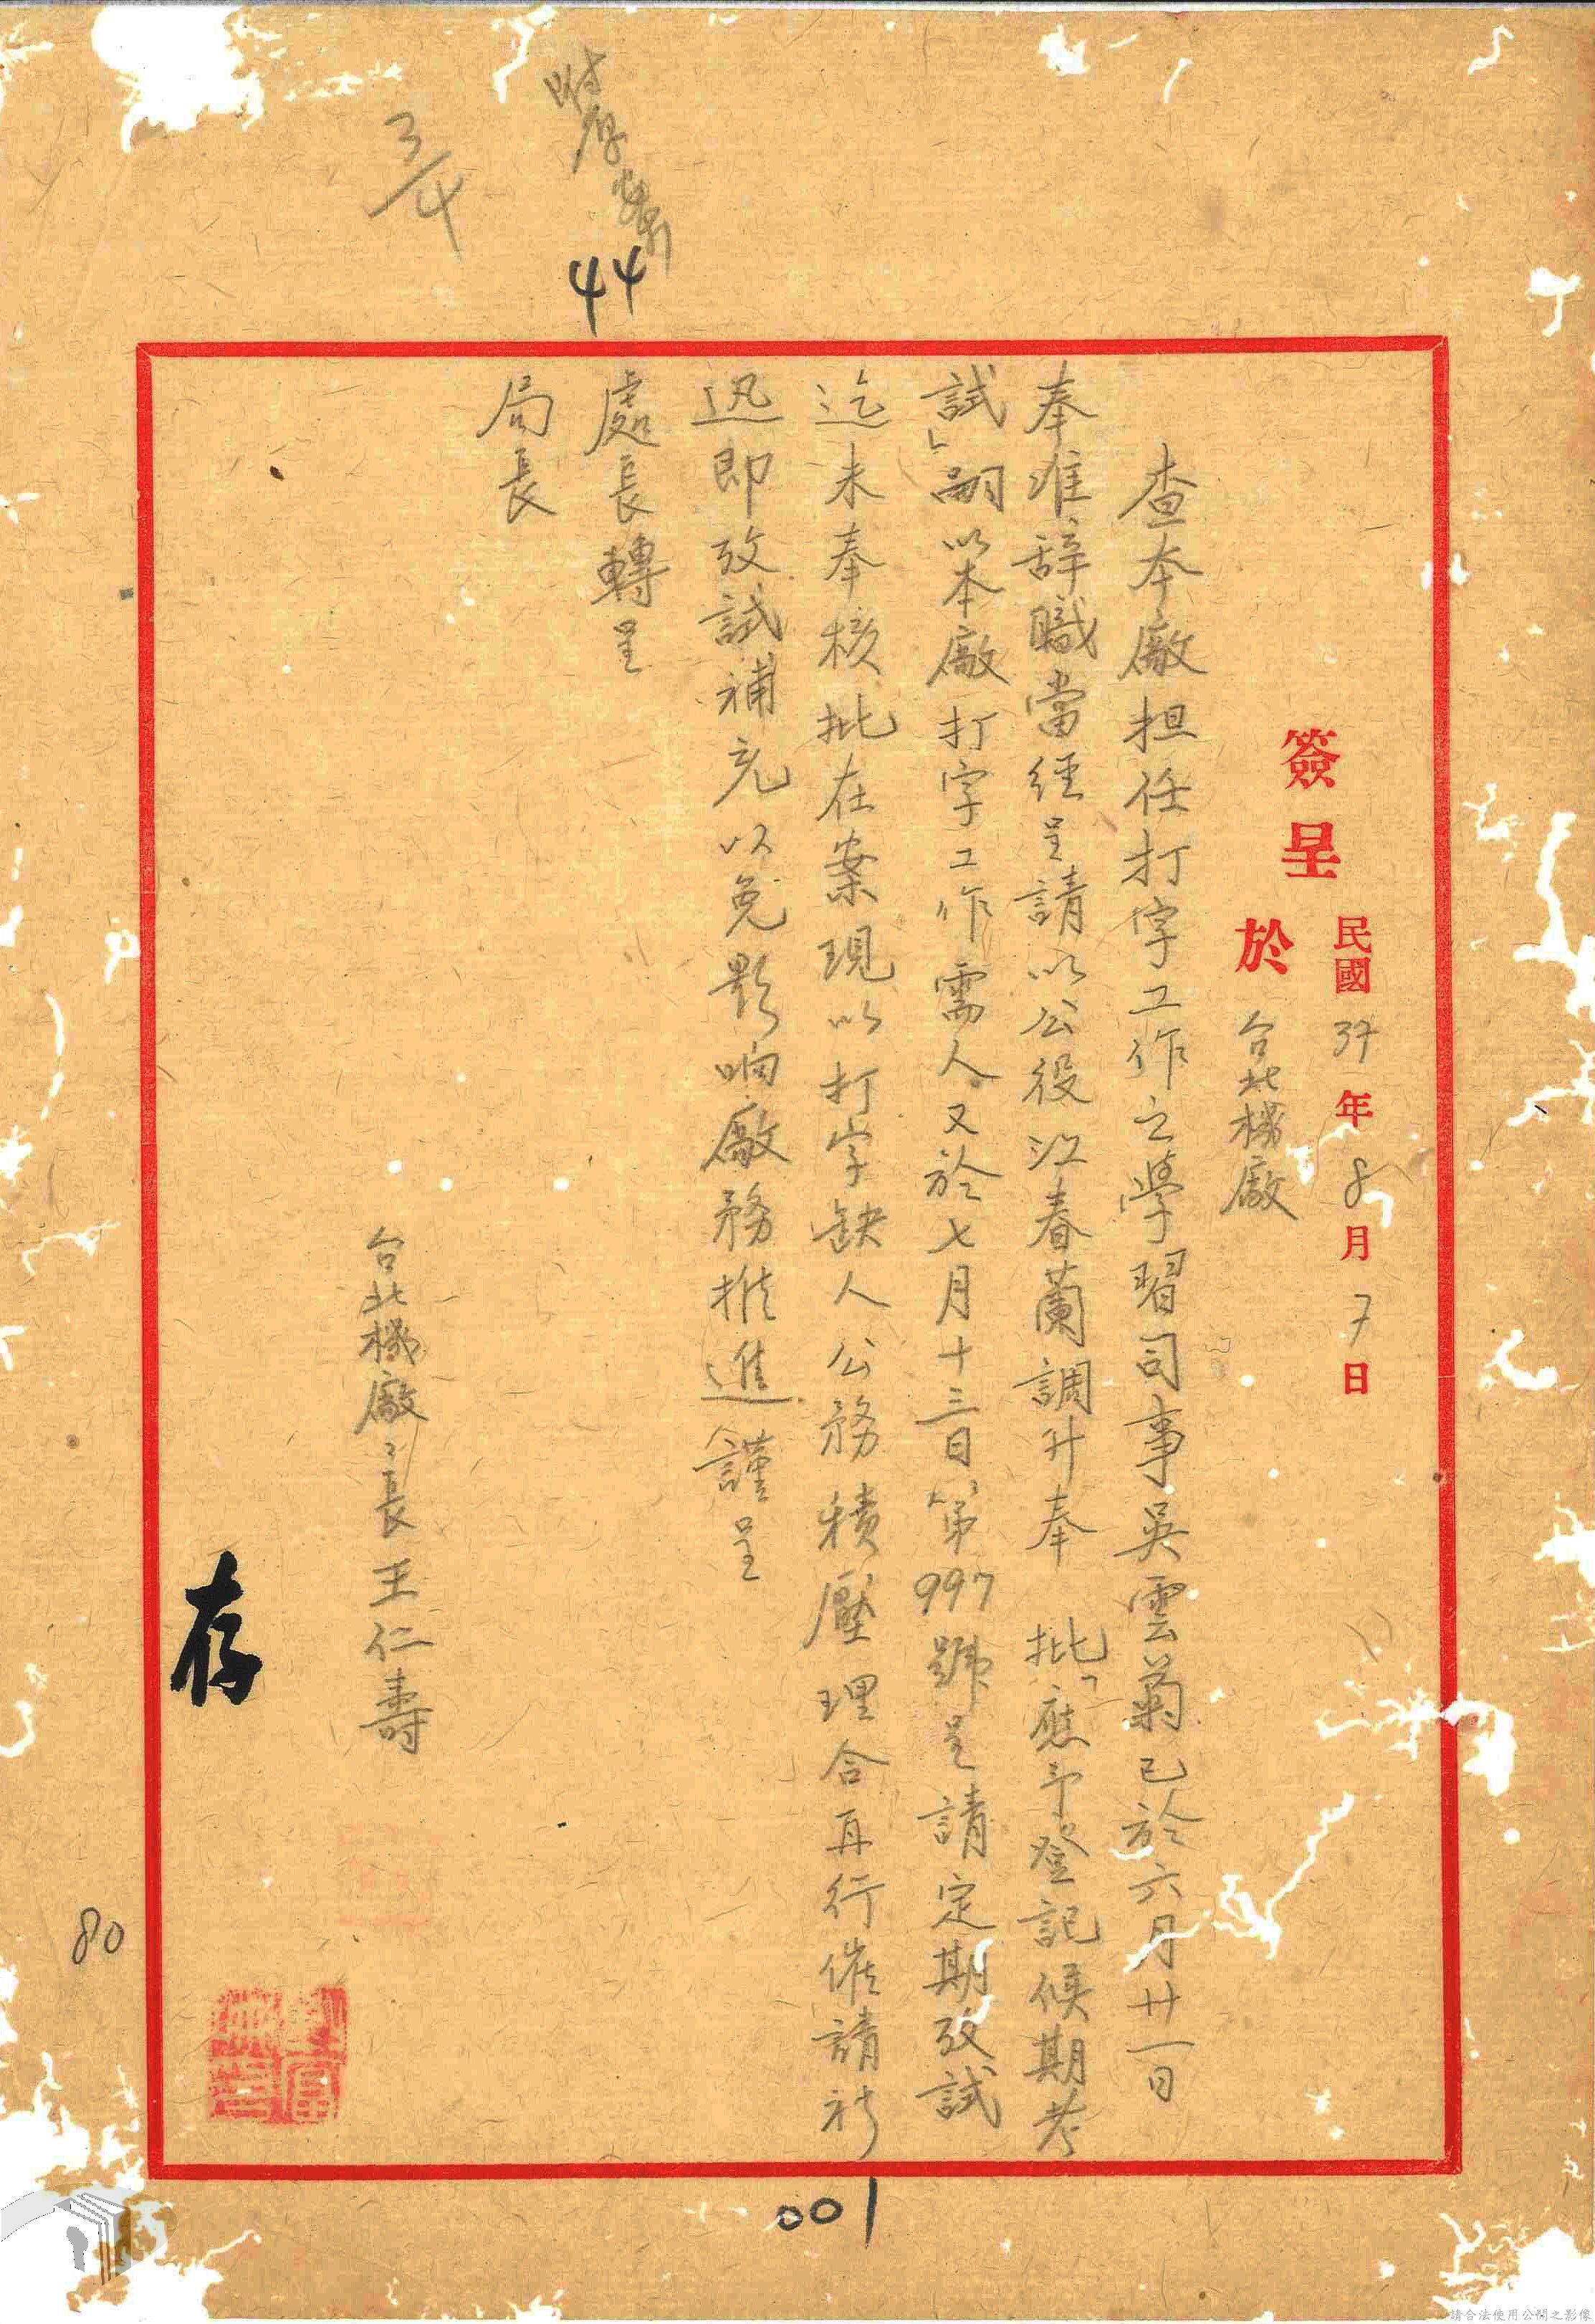 簽呈
民國37年8月7日
於 台北機廠
查本廠担任打字工作之學習司事吳雲菊已於六月廿一日
奉准辞職當經呈請以公役江春蘭調升奉 批「應予登記候期考
試」嗣以本廠打字工作需人又於七月十三日第997號呈請定期攷試
迄未奉核批在案現以打字缺人公務積壓理合再行催請祈
迅即攷試補充以免影响廠務推進謹呈
處長轉呈
局長
台北機廠々長王仁壽
存
附原案
44
3/4
80
001
請合法使用公開之影像